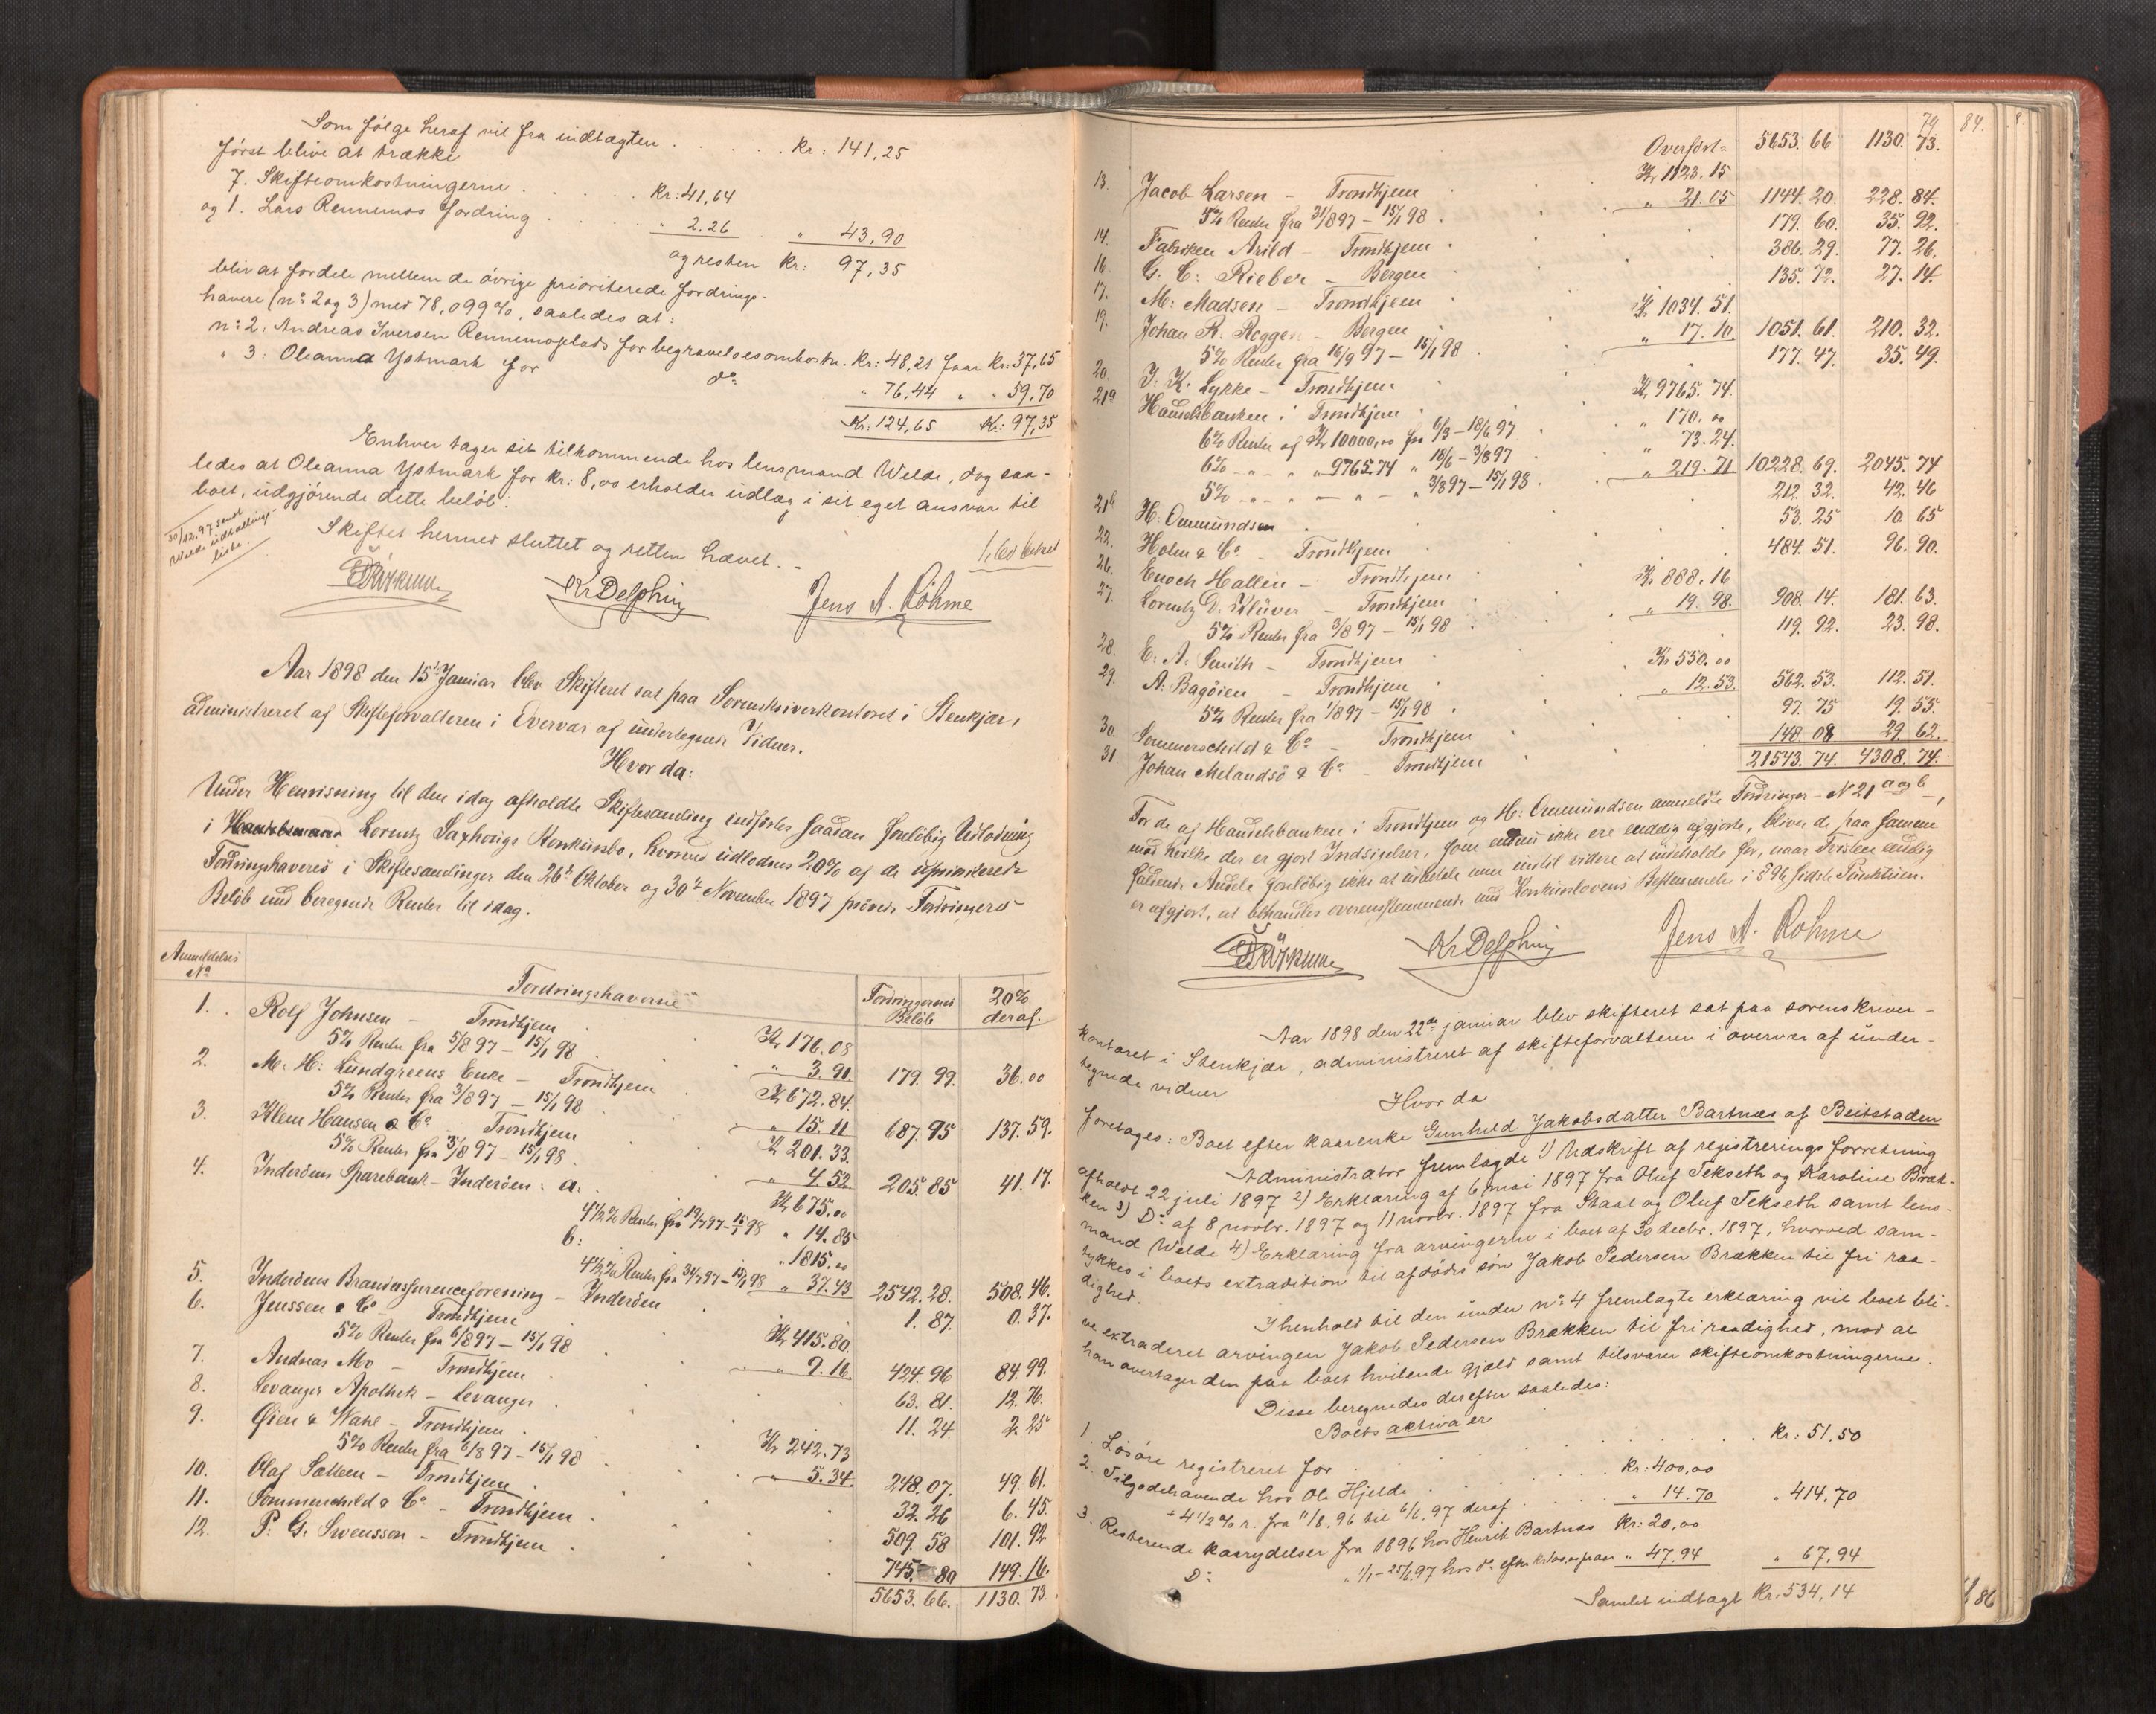 Som følge heraf vil fra indtægten . . . . . kr: 141,25
først blive at trække
7. Skifteomkostningerne . . . . kr: 41,64
og 1. Lars Rennemos fordring . . . „ 2.26 „ 43,90
og resten kr: 97,35
bliv at fordele mellem de øvrige prioriterede fordrings-
havere (n: 2 og 3) med 78,099 %, saaledes at:
n: 2: Andreas Iversen Rennemsplads for begravelsesomkostn. kr: 48,21 faar kr: 37,65
„ 3: Oleanna Ystmark for do „ 76,44 „ „ 59,70
kr: 124,65 kr: 97,35
Enhver tager sit tilkommende hos lensmand Welde, dog saa-
ledes at Oleanna Ystmark for kr: 8,00 erholder udlæg i sit eget ansvar til
boet, udgjørende dette beløb.
30/12.97 sendt
Welde udtallings-
liste.
Skiftet hermed sluttet og retten hævet. -
Kr Delphin Jens A. Røhme
Aar 1898 den 15de Januar blev Skifteret sat paa Sorenskriverkontoret i Stenkjær,
administreret af Skifteforvalteren i Overvær af undertegnede Vidner.
Hvor da:
Under Henvisning til den idag afholdte Skiftesamling indførtes saadan foreløbig Udlodning
i Lorentz Saxhougs Konkursbo, hvorved udloddes 20% af de
Fordringshaveres i Skiftesamlinger den 26de Oktober og 30te November 1897 prøvede Fordringers
Beløb med beregnede Renter til idag.
Anmeldelses
No
Fordringshaverne
Fordringernes
Beløb
20%
deraf.
1. Rolf Johnsen - Trondhjem . Kr 176.08
5% Renter fra 5/8 97 - 15/1 98 „ 3.91. 179.99. 36.00
2. M. H: Lundgreens Enke - Trondhjem Kr 672.84.
5% Renter fra 3/8 97 - 15/1 98 „ 15.11 687.95 137.59.
3. Klem Hansen & Co Trondhjem Kr 201.33.
5% Renter fra 3/8 97 - 15/1 98 „ 4.52 205.85 41.17.
4. Inderøens Sparebank - Inderøen: a: Kr 675.00
4 1/2% Renter fra 19/7 97 - 15/1 98 „ 14.85
b: „ 1815.00
4 1/2% Renter fra 31/7 97 - 15/1 98 „ 37.43 2542.28. 508.46.
5. Inderøens Brandassuranceforening - Inderøen 1.87. 0.37.
6. Jenssen & Co Trondhjem Kr 415.80
5% Renter fra 6/8 97 - 15/1 98 „ 9.16. 424.96 84.99.
7. Andreas Mo - Trondhjem 63.81. 12.76.
8. Levanger Apothek - Levanger 11.24. 2.25
9. Øien & Wahl - Trondhjem Kr 242.73
5% Renter fra 6/8 97 - 15/1 98 „ 5.34. 248.07. 49.61.
10. Olaf Sætten - Trondhjem 32.26 6.45.
11. Sommerschild & Co - Trondhjem 509.58 101.92
12. P. G. Svensson - Trondhjem 745.80 149.16.
5653.66. 1130.73.
79 84.
Overført= 5653.66 1130.73.
13. Jacob Larsen - Trondhjem Kr 1123.15
5% Renter fra 31/8 97 - 15/1 98 „ 21.05 1144.20. 228.84.
14. Fabriken Arild - Trondhjem 179.60. 35.92.
16. G. C: Rieber - Bergen 386.29. 77.26.
17. M: Madsen - Trondhjem 135.72. 27.14.
19. Johan R. Roggen - Bergen Kr 1034.51.
5% Renter fra 16/9 97 - 15/1 98 „ 17.10. 1051.61. 210.32.
20. J. K. Lykke - Trondhjem 177.47. 35.49.
21a Handelsbanken i Trondhjem Kr 9765.74.
6% Renter af Kr 10000,00 fra 6/3 - 18/6 97 „ 170.00
6% - „ - „ „ 9765.74 „ 18/6 - 3/8 97 „ 73.24.
5% - „ - „ — „ — „ 3/8 97 - 15/1 98 „ 219.71 10228.69. 2045.74
21b H: Ommundsen 212.32. 42.46
22. Holm & Co - Trondhjem 53.25 10.65
26. Enoch Hallin - Trondhjem 484.51. 96.90.
27. Lorentz D. Klüver - Trondhjem Kr 888.16
5% Renter fra 3/8 97 - 15/1 98 „ 19.98. 908.14. 181.63.
28. E. A: Smith - Trondhjem 119.92. 23.98.
29. A. Bagøien - Trondhjem Kr 550.00
5% Renter fra 1/8 97 - 15/1 98 „ 12.53. 562.53. 112.51.
30. Sommerschild & Co - Trondhjem 97.75 19.55.
31 Johan Melandsø & Co - Trondhjem 148.08 29.62.
21543.74. 4308.74.
For de af Handelsbanken i Trondhjem og H: Ommundsen anmeldte Fordringer - No 21 a og b -,
mod hvilke der er gjort Indsigelser, som endnu ikke ere endelig afgjorte, bliver de paa samme
faldende Andele foreløbig ikke at udbetale men indtil videre at indeholde for, naar Tvisten endelig
er afgjort, at behandles overensstemmende med Konkurslovens Bestemmelse i § 96 sidste Punktum.
Kr Delphin Jens A. Røhme
Aar 1898 den 22de januar blev skifteret sat paa sorenskriver-
kontoret i Stenkjær, administreret af skifteforvalteren i overvær af under-
tegnede vidner
Hvor da
foretages: Boet efter kaarenke Gunhild Jakobsdatter Bartnes af Beitstaden
Administrator fremlagde 1) Udskrift af registreringsforretning
afholdt 22 juli 1897 2) Erklæring af 6 mai 1897 fra Oluf Tekseth og Karoline Bræk-
ken 3) Do af 8 novbr. 1897 og 11 novbr. 1897 fra Staal og Oluf Tekseth samt lens-
mand Welde 4) Erklæring fra arvingerne i boet af 30 decbr. 1897, hvorved sam-
tykkes i boets extradition til afdødes søn Jakob Pedersen Brækken til fri raa-
dighed.
I henhold til den under no: 4 fremlagte erklæring vil boet bli-
ve extraderet arvingen Jakob Pedersen Brækken til fri raadighed, mod at
han overtager den paa boet hvilende gjæld samt tilsvarer skifteomkostningerne.
Disse beregnedes derefter saaledes:
Boets aktiva er
1. Løsøre registreret for . . . . kr: 51,50
2. Tilgodehavende hos Ole Hjelde . . . kr: 400,00
+ 4 1/2 % r. fra 11/8.96 til 6/6.97 deraf . . . „ 14.70 „ 414,70
3. Resterende kaarydelser fra 1896 hos Henrik Bartnes kr: 20,00
Do „ 1/1 - 25/6.97 hos do „ 47.94 „ 67,94
Samlet indtægt kr. 534,14
86